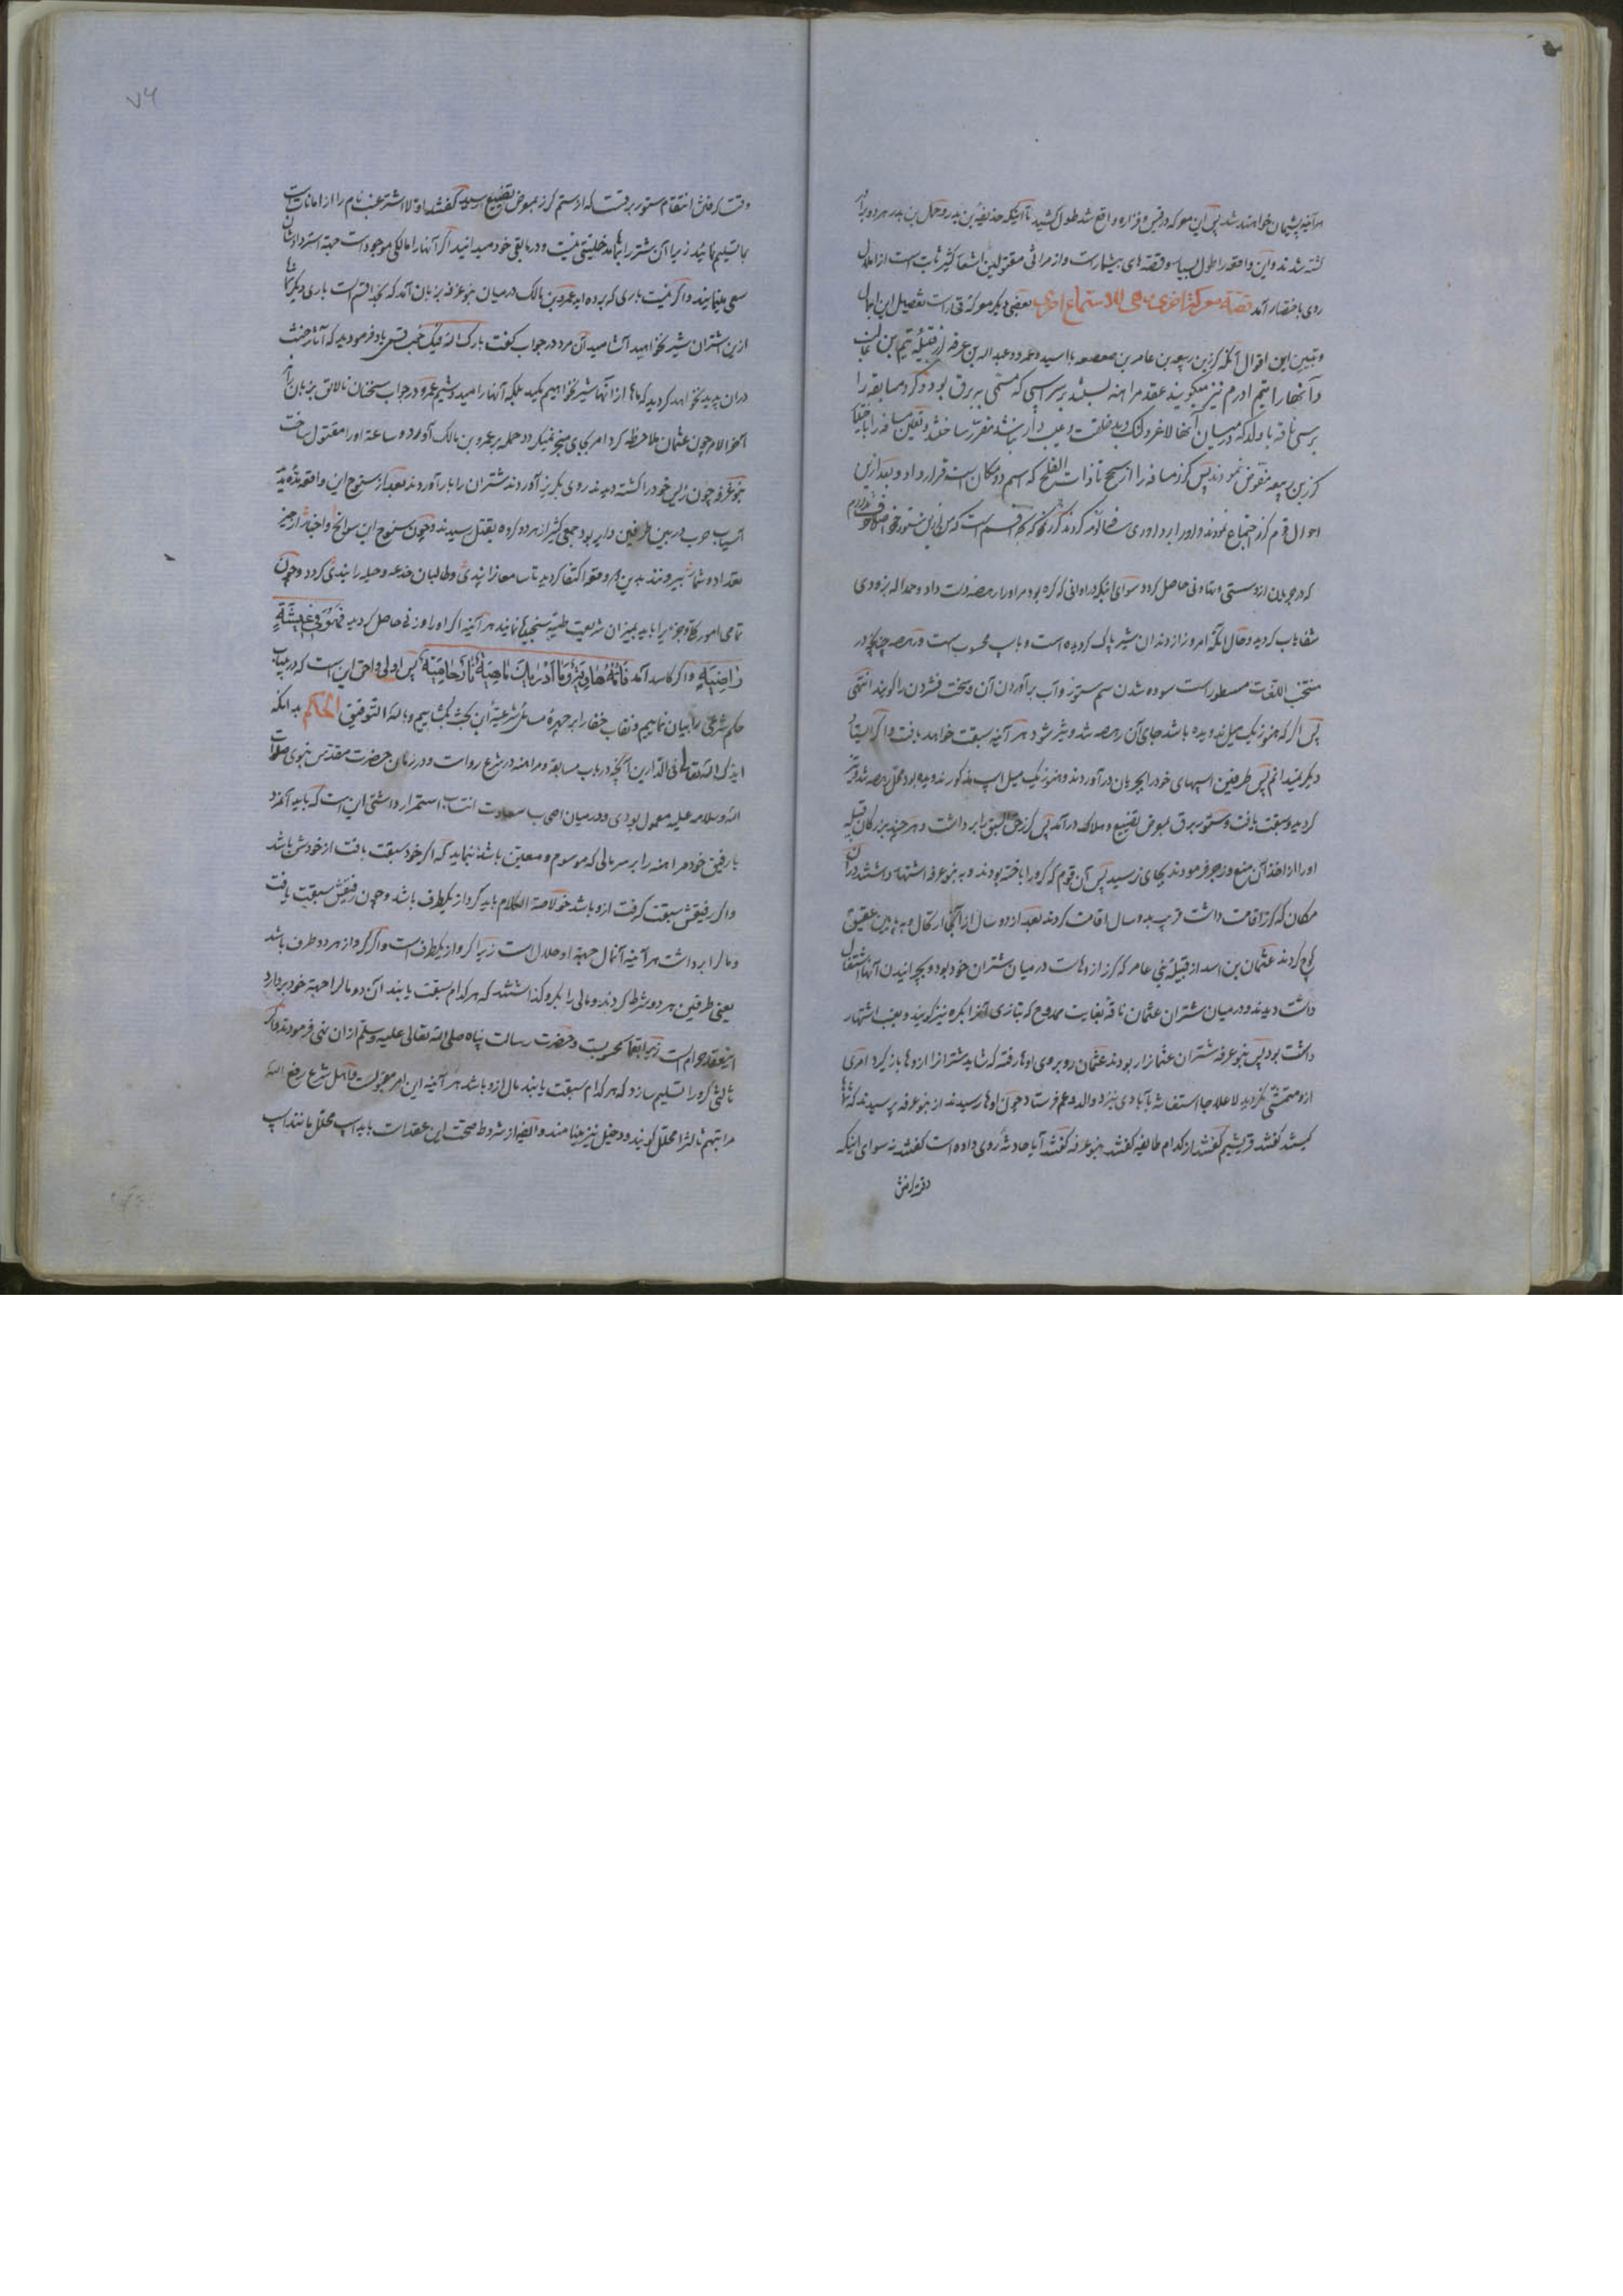 هرآینه پشیمان خواهند شد پس این معرکه در قیس و فزاره واقع شد طول کشید تا آنکه حذیفه بن بدر و حمل بن بدر هر دو برادر
کشته شدند و این واقعه را طول بسیار و قصه های بیشمار است و از مراثی مقتولین اشعار کثیر ثابت است از
روی باختصار آمد قصة معرکة اخری للاستماع احری بعضی دیگر معرکه قرار است تفصیل این اجمال
و تبیین این اقوال آنکه کرز بن ربیعه بن عامر بن صعصعه با اسید و عمرو و عبدالله بن عرفه از قبیله تیم بن
و آنها را تیم ادرم نیز میگویند عقد مراهنه بستند بر اسپی که مسمی به برق بود و گرو مسابقه را
بر سی ناقه با ولد که در میان آنها لاغر و لنگ و بد خلقت و عیب دار نباشد مقرر ساختند و تعیین مسافه را
کرز بن ربیعه مفوض نمودند پس کرز مسافه را از سح تا ذات الفلج که اسم دو مکان است قرار داد و بعد ازین
احوال قوم کرز اجتماع نمودند و او را بر داوری سخط کردند کرز
که در جریان ازو سستی و تهاونی حاصل گردد سوای اینکه در اوانی که کره بود مر او را رهصه دست داد و حمدا لله بزودی
شفایاب گردید و حال آنکه امروز از دندان شیر پاک گردیده است و باسپ محسوب است و رهصه چنانچه در
منتخب اللغات مسطور است سوده شدن سم ستور و آب برآوردن آن و سخت فشردن را گویند انتهی
پس اگر که هنوز یک میل ندویده باشد جای آن رهصه شد و نیز شود هر آینه سبقت خواهد یافت و اگر
دیگر نمیدانم پس طرفین اسپهای خود را بجریان درآوردند و هنوز یک میل اسپ مذکور ندویده بود محل رهصه شد و نیز
گردید و سبقت یافت و ستور برق بمعرض تضییع و هلاک درآمد پس کرز حق السبق را برداشت و هر چند بزرگان قبیله
او را از اخذ آن منع و زجر فرمودند بجای نرسید پس آن قوم که گرو را باخته بودند و به بنو عرفه اشتهار داشتند در آن
مکان که کرز اقامت داشت قریب بدو سال اقامت کردند بعد از دو سال از آنجا ارتحال و به عقیق
کوچ کردند عثمان بن اسد از قبیله بنی عامر که کرز از وهاست در میان شتران خود بود و بچرانیدن آنها اشتغال
داشت دیدند و در میان شتران عثمان ناقه بغایت ممدوح که بتازی آنرا بکره نیز گویند و بعیب اشتهار
داشت بود پس بنو عرفه شتران عثمان را ربودند عثمان روبروی اوها رفته که شاید شتران را از وها باز گیرد امری
ازو متمشی نگردید لاعلاجا استغاثه بآبادی نزد والد و عم فرستاد چون اوها رسیدند از بنو عرفه پرسیدند که شما
کیستید گفتند قریشیم گفتند از کدام طایفه گفتند بنو عرفه گفتند آیا حادثه روی داده است گفتند نه سوای اینکه
۷۶
وقت گرفتن انتقام ستور برقست که از ستم کرز بمعرض تضییع رسید گفتند اولا اشتر عیب نام را از امانات است
بما تسلیم نمائید زیرا آن شتر را بشما مدخلیتی نیست و در مابقی خود میدانید اگر آنها را مالکی موجود است جهته استرداد شان
سعی مینمایند و اگر نیست باری که برده اید عمرو بن مالک در میان بنو عرفه بزبان آمد که بخدا قسم است باری دیگر شما
ازین اشتران شیر نخواهید آشامید آن مرد در جواب گفت بارک الله فیک خوب قسمی یاد فرمودید که آثار حنث
در آن پدید نخواهد گردید که ماها از آنها شیر نخواهیم مکید بلکه آنها را میدوشیم عمرو در جواب سخنان نالایق بر زبان راند
آخر الامر چون عثمان ملاحظه کرد امر بجای منجر نمیگردد حمله بر عمرو بن مالک آورد و ساعة او را مقتول ساخت
بنو عرفه چون رئیس خود را کشته دیدند روی بگریز آوردند شتران را باز آوردند بعد از سنوح این واقعه
آسیاب حرب در بین طرفین دایر بود جمعی کثیر از هر دو گروه بقتل رسیدند و چون سنوح این سوانح و اخبار از حیز
تعداد و شمار بیرونند بدین دو وقعه اکتفا گردید تا سامعان را پندی و طالبان خدعه و حیله را بندی گردد و چون
تمامی امور کلی و جزئی را باید بمیزان شریعت طیبه سنجیدها نمایند هر آینه اگر او را وزنی حاصل گردید فَهُوَ فی عیشَةٍ
راضِیَةٍ و اگر کاسد آمد فَاُمُّهُ هاوِیَة وَما اَدْریكَ ماهِیَه نارٌ حامِیَة پس اولی و احق این است که در عنایت
حکم شرعی را بیان نماییم و نقاب خفا را بر چهره مسائل شرعیه این بحث بگشاییم و بالله التوفیق الحکم بدانکه
ایدک الله تعالی فی الدارین آنچه در باب مسابقه و مراهنه در شرع رواست و در زمان حضرت مقدس نبوی صلوات
الله و سلامه علیه معمول بودی و در میان اصحاب سعادت انتساب استمرار داشتی این است که باید آنمرد
با رفیق خود مراهنه را بر سر مالی که موسوم و معین باشد بنماید که اگر خود سبقت یافت از خودش باشد
و اگر رفیقش سبقت گرفت ازو باشد خلاصة الکلام باید گرو از یکطرف باشد و چون رفیقش سبقت یافت
و مال را برداشت هر آینه آنمال جهته او حلال است زیرا گرو از یکطرف است و اگر گرو از هر دو طرف باشد
یعنی طرفین هر دو شرط کردند و مالی را بگرو گذاشتند که هر کدام سبقت یابند آن دو مال را جهته خود بردارد
این عقد حرام است زیرا بقمار محسوبست و حضرت رسالت پناه صلی الله تعالی علیه وسلم از آن نهی فرمودند و اگر
ثالثی گرو را تسلیم سازد که هر کدام سبقت یابند مال ازو باشد هر آینه این امر مقبولست و اهل شرع رفع الله
مراتبهم ثالث را محلل گویند و دخیل نیز مینامند و ایضا از شروط صحت این عقد است باید اسپ محلل مانند اسپ